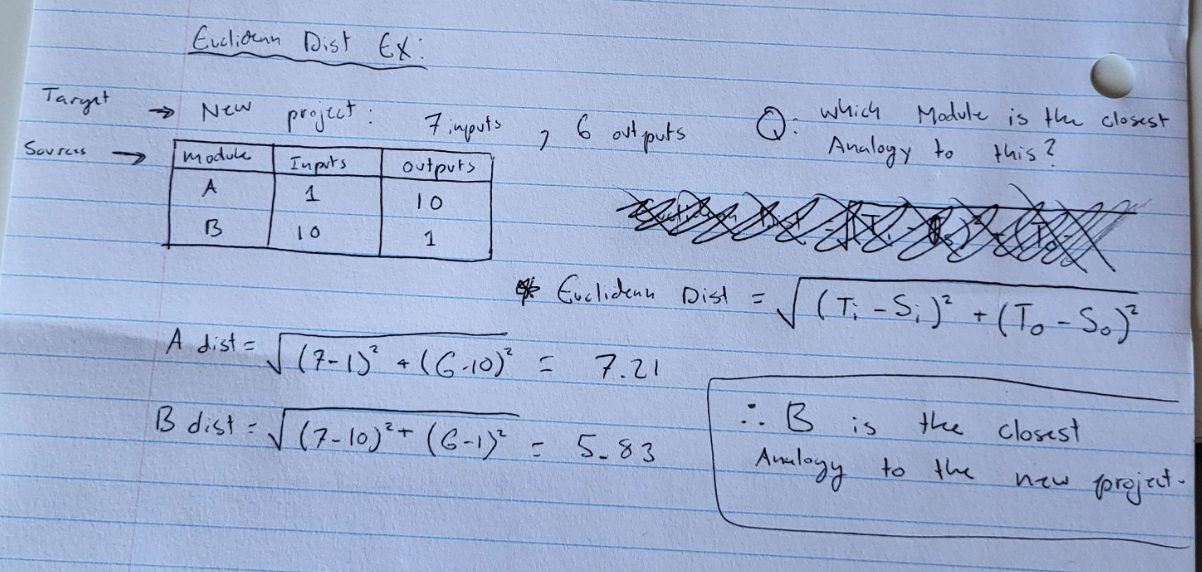 Euclidean Dist Ex:
Target → New project: 7 inputs, 6 outputs
Q: which Module is the closest
Analogy to this?
Sources →
Module Inputs outputs
A 1 10
B 10 1
* Euclidean Dist = √(Ti - Si)² + (To - So)²
A dist = √(7-1)² + (6-10)² = 7.21
B dist = √(7-10)² + (6-1)² = 5.83
∴ B is the closest
Analogy to the new project.